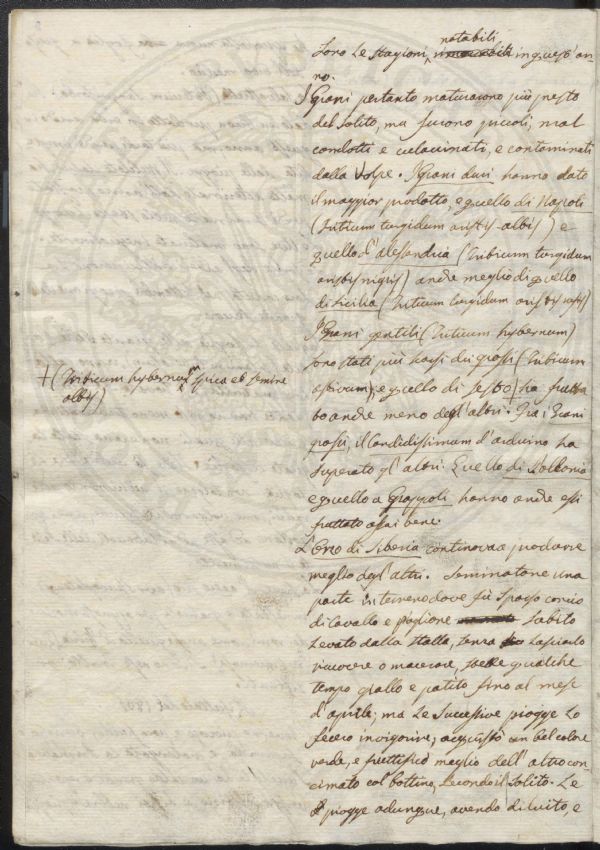 notabili
Sono le stagioni, in quest'an-
no.
I Grani pertanto maturarono più presto
del solito, ma furono piccoli, mal
condotti e , e contaminati
dalla Volpe. I Grani duri hanno dato
il maggior prodotto, e quello di Napoli
(Triticum turgidum aristis albis) e
quello d'Alesandria (Triticum turgidum
aristis nigris) anche meglio di quello
di Sicilia (Triticum turgidum aristis rufis)
I Grani gentili (Triticum hybernum)
sono stati più scarsi dei grossi (Triticum
aestivum), e quello di Sesto + ha frutta
to anche meno degl'altri. Fra i Grani
grossi, il Candidissimum d'arduino ha
superato gl'altri. Quello di Polonia
e quello a Grappoli hanno anche essi
fruttato assai bene.
+ (Triticum hybernum spica et semine
albis)
L'Orzo di Siberia continova a produrre
meglio degl'altri. Seminatone una
parte in terreno dove fu sparso concio
di Cavallo e piglione subito
levato dalla stalla, senza lasciarlo
ricuocere o macerare, stette qualche
tempo giallo e patito fino al mese
d'aprile; ma le successive piogge lo
fecero invigorire, acquistò un bel colore
verde, e fruttificò meglio dell'altro con-
cimato col bottino, secondo il solito. Le
piogge adunque, avendo diluito, e